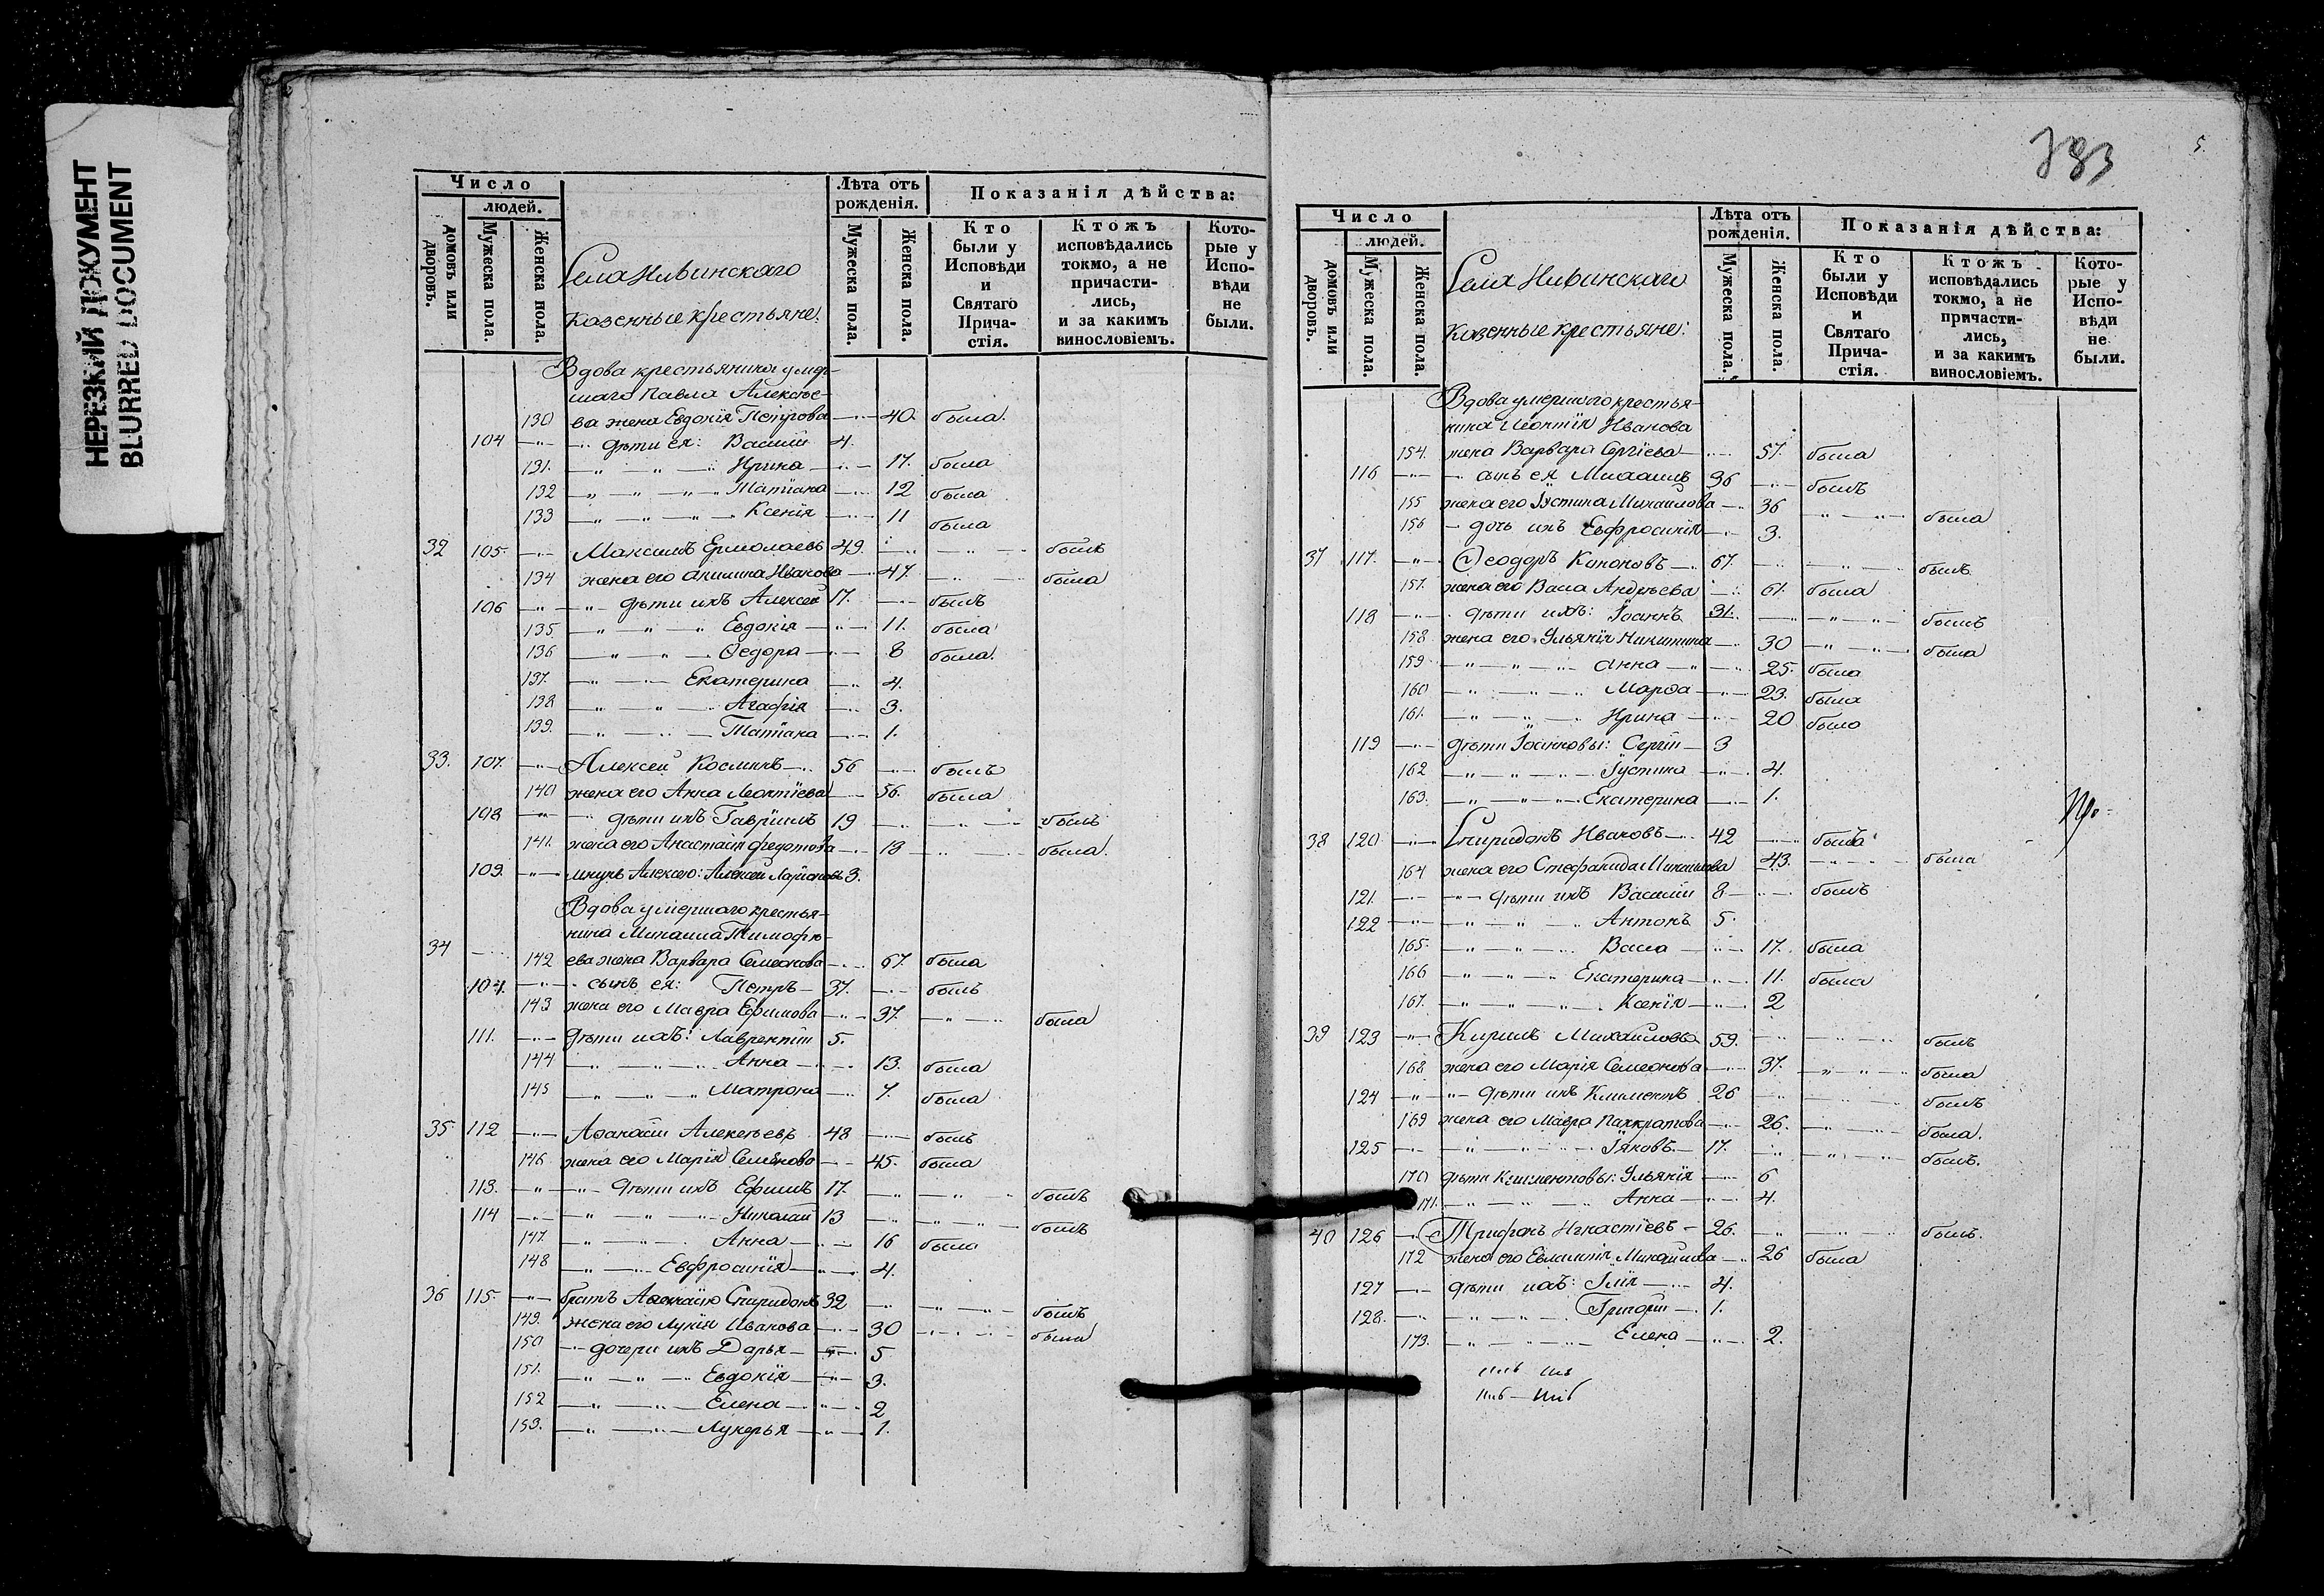 НЕРЕЗКИЙ ДОКУМЕНТ
BLURRED DOCUMENT
Число
людей.
домовъ или дворовъ.
Мужеска пола.
Женска пола.
Села Нивинскаго
казенные крестьяне:
Лѣта отъ рожденія.
Мужеска пола.
Женска пола.
Показанія дѣйства:
Кто были у Исповѣди и Святаго Прича-стія.
Ктожъ исповѣдались токмо, а не причасти-лись, и за какимъ винословіемъ.
Кото-рые у Испо-вѣди не были.
Вдова крестьянина умер-
шаго Павла Алексѣе-
130 ва жена Евдокія Петрова 40. была.
104 дѣти ея: Василій 4.
131. Ирина 17. была
132 Татіана 12 была
133 Ксенія 11 была
32 105. Максимъ Ермолаевъ 49. былъ
134 жена его Акилина Иванова 47. была
106 дѣти ихъ Алексей 17. былъ
135 Евдокія 11. была
136 Ѳедора 8 была.
137. Екатерина 4.
138 Агафія 3.
139. Татіана 1.
33. 107. Алексей Косминъ 56 былъ
140 жена его Анна Леонтіева 56. была
108 дѣти ихъ Гавріилъ 19 былъ
141. жена его Анастасія Федотова 18 была.
109. внукъ Алексею: Алексей Ларіоновъ 3.
Вдова умершаго крестья-
нина Михаила Тимофѣ-
34 142 ева жена Варвара Семеонова 67. была
104. сынъ ея: Петръ 37. былъ
143 жена его Мавра Ефимова 37. была
111. дѣти ихъ: Лаврентій 5.
144 Анна 13. была
145 Матрона 7. была
35 112 Аѳанасій Алексѣевъ 48 былъ
146 жена его Марія Семенова 45. была
113. дѣти ихъ Ефимъ 17. былъ
114 Николай 13 былъ
147. Анна 16 была
148 Евфросинія 4.
36 115. братъ Аѳанасію Спиридонъ 32 былъ
149. жена его Лукія Иванова 30 была
150 дочери ихъ Дарья 5
151. Евдокія 3.
152 Елена 2
153. Лукерья 1.
383
5.
Число
людей.
домовъ или дворовъ.
Мужеска пола.
Женска пола.
Села Нивинскаго
казенные крестьяне:
Лѣта отъ рожденія.
Мужеска пола.
Женска пола.
Показанія дѣйства:
Кто были у Исповѣди и Святаго Прича-стія.
Ктожъ исповѣдались токмо, а не причасти-лись, и за какимъ винословіемъ.
Кото-рые у Испо-вѣди не были.
Вдова умершаго крестья-
нина Леонтія Иванова
154. жена Варвара Сергіева 57. была
116 сынъ ея Михаилъ 36 былъ
155 жена его Іустина Михаилова 36 была
156 дочь ихъ Евфросинія 3.
37 117. Ѳеодоръ Кононовъ 67. былъ
157. жена его Васса Андреева 61. была
118 дѣти ихъ: Іоаннъ 31. былъ
158 жена его Ульянія Никитина 30 была
159 Анна 25. была
160 Марѳа 23. была
161. Ирина 20 была
119 дѣти Іоанновы: Сергій 3
162 Іустина 4.
163. Екатерина 1.
38 120 Спиридонъ Ивановъ 42 былъ
164 жена его Стефанида Михаилова 43. была
121. дѣти ихъ Василій 8 былъ
122 Антонъ 5.
165. Васса 17. была
166 Екатерина 11. была
167. Ксенія 2
39 123 Кирилъ Михаиловъ 59. былъ
168 жена его Марія Семеонова 37. была
124 дѣти ихъ Климентъ 26 былъ
169 жена его Мавра Панкратова 26. была.
125 Іаковъ 17. былъ.
170 дѣти Климентовы: Ульянія 6
171. Анна 4.
40 126 Трифонъ Игнатіевъ 26. былъ.
172 жена его Евлампія Михаилова 26 была
127 дѣти ихъ: Ілія 4.
128. Григорій 1.
173. Елена 2.